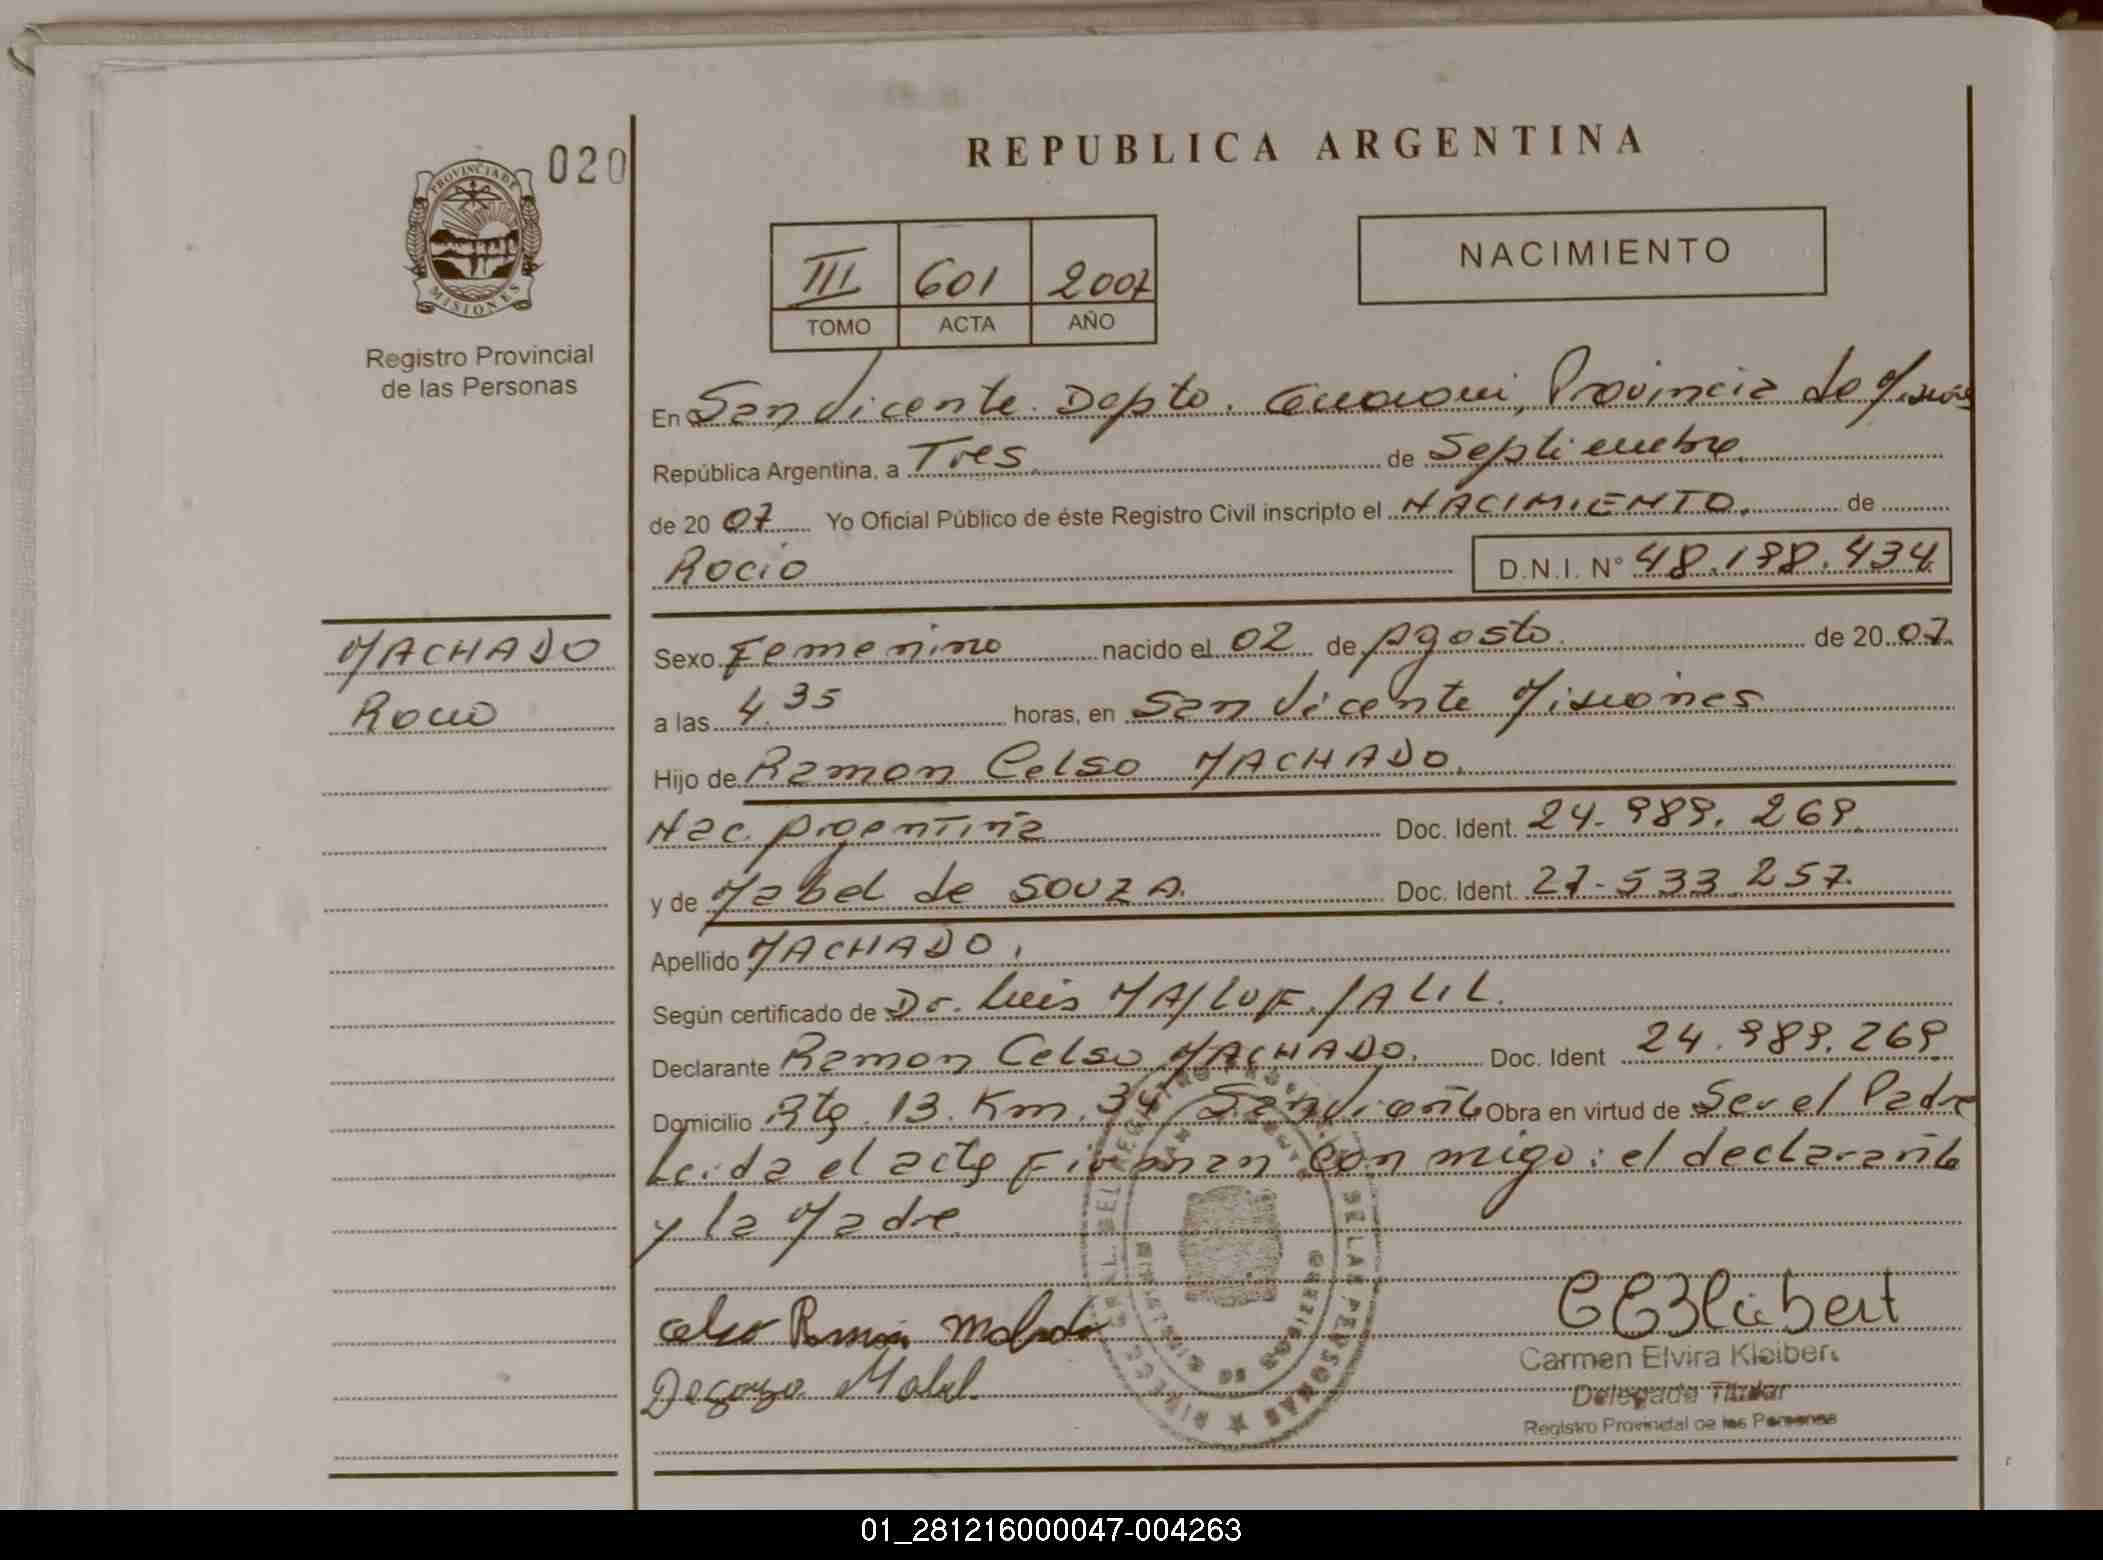 020
PROVINCIA DE
MISIONES
Registro Provincial
de las Personas
MACHADO
Rocio
REPUBLICA ARGENTINA
III 601 2007
TOMO ACTA AÑO
NACIMIENTO
En San Vicente. Depto. Guarani, Provincia de Misiones
República Argentina, a Tres de Septiembre
de 20 07 Yo Oficial Público de éste Registro Civil inscripto el NACIMIENTO. de
Rocio D.N.I. N° 48.198.434
Sexo Femenino nacido el 02 de Agosto de 20 07
a las 4.35 horas, en San Vicente Misiones
Hijo de Ramon Celso MACHADO.
Nac. Argentina Doc. Ident. 24-989.269
y de Mabel de SOUZA. Doc. Ident. 27-533.257
Apellido MACHADO.
Según certificado de Dr. Luis JALIL.
Declarante Ramon Celso MACHADO. Doc. Ident 24.989.269
Domicilio Rta. 13. Km. 34 San Vicente Obra en virtud de Ser el Padre
Leida el acta Firman con migo: el declarante
y la Madre
Celso Ramon Machado
Desouza Mabel
Carmen Elvira Kleibert
Delegada Titular
Registro Provincial de las Personas
01_281216000047-004263